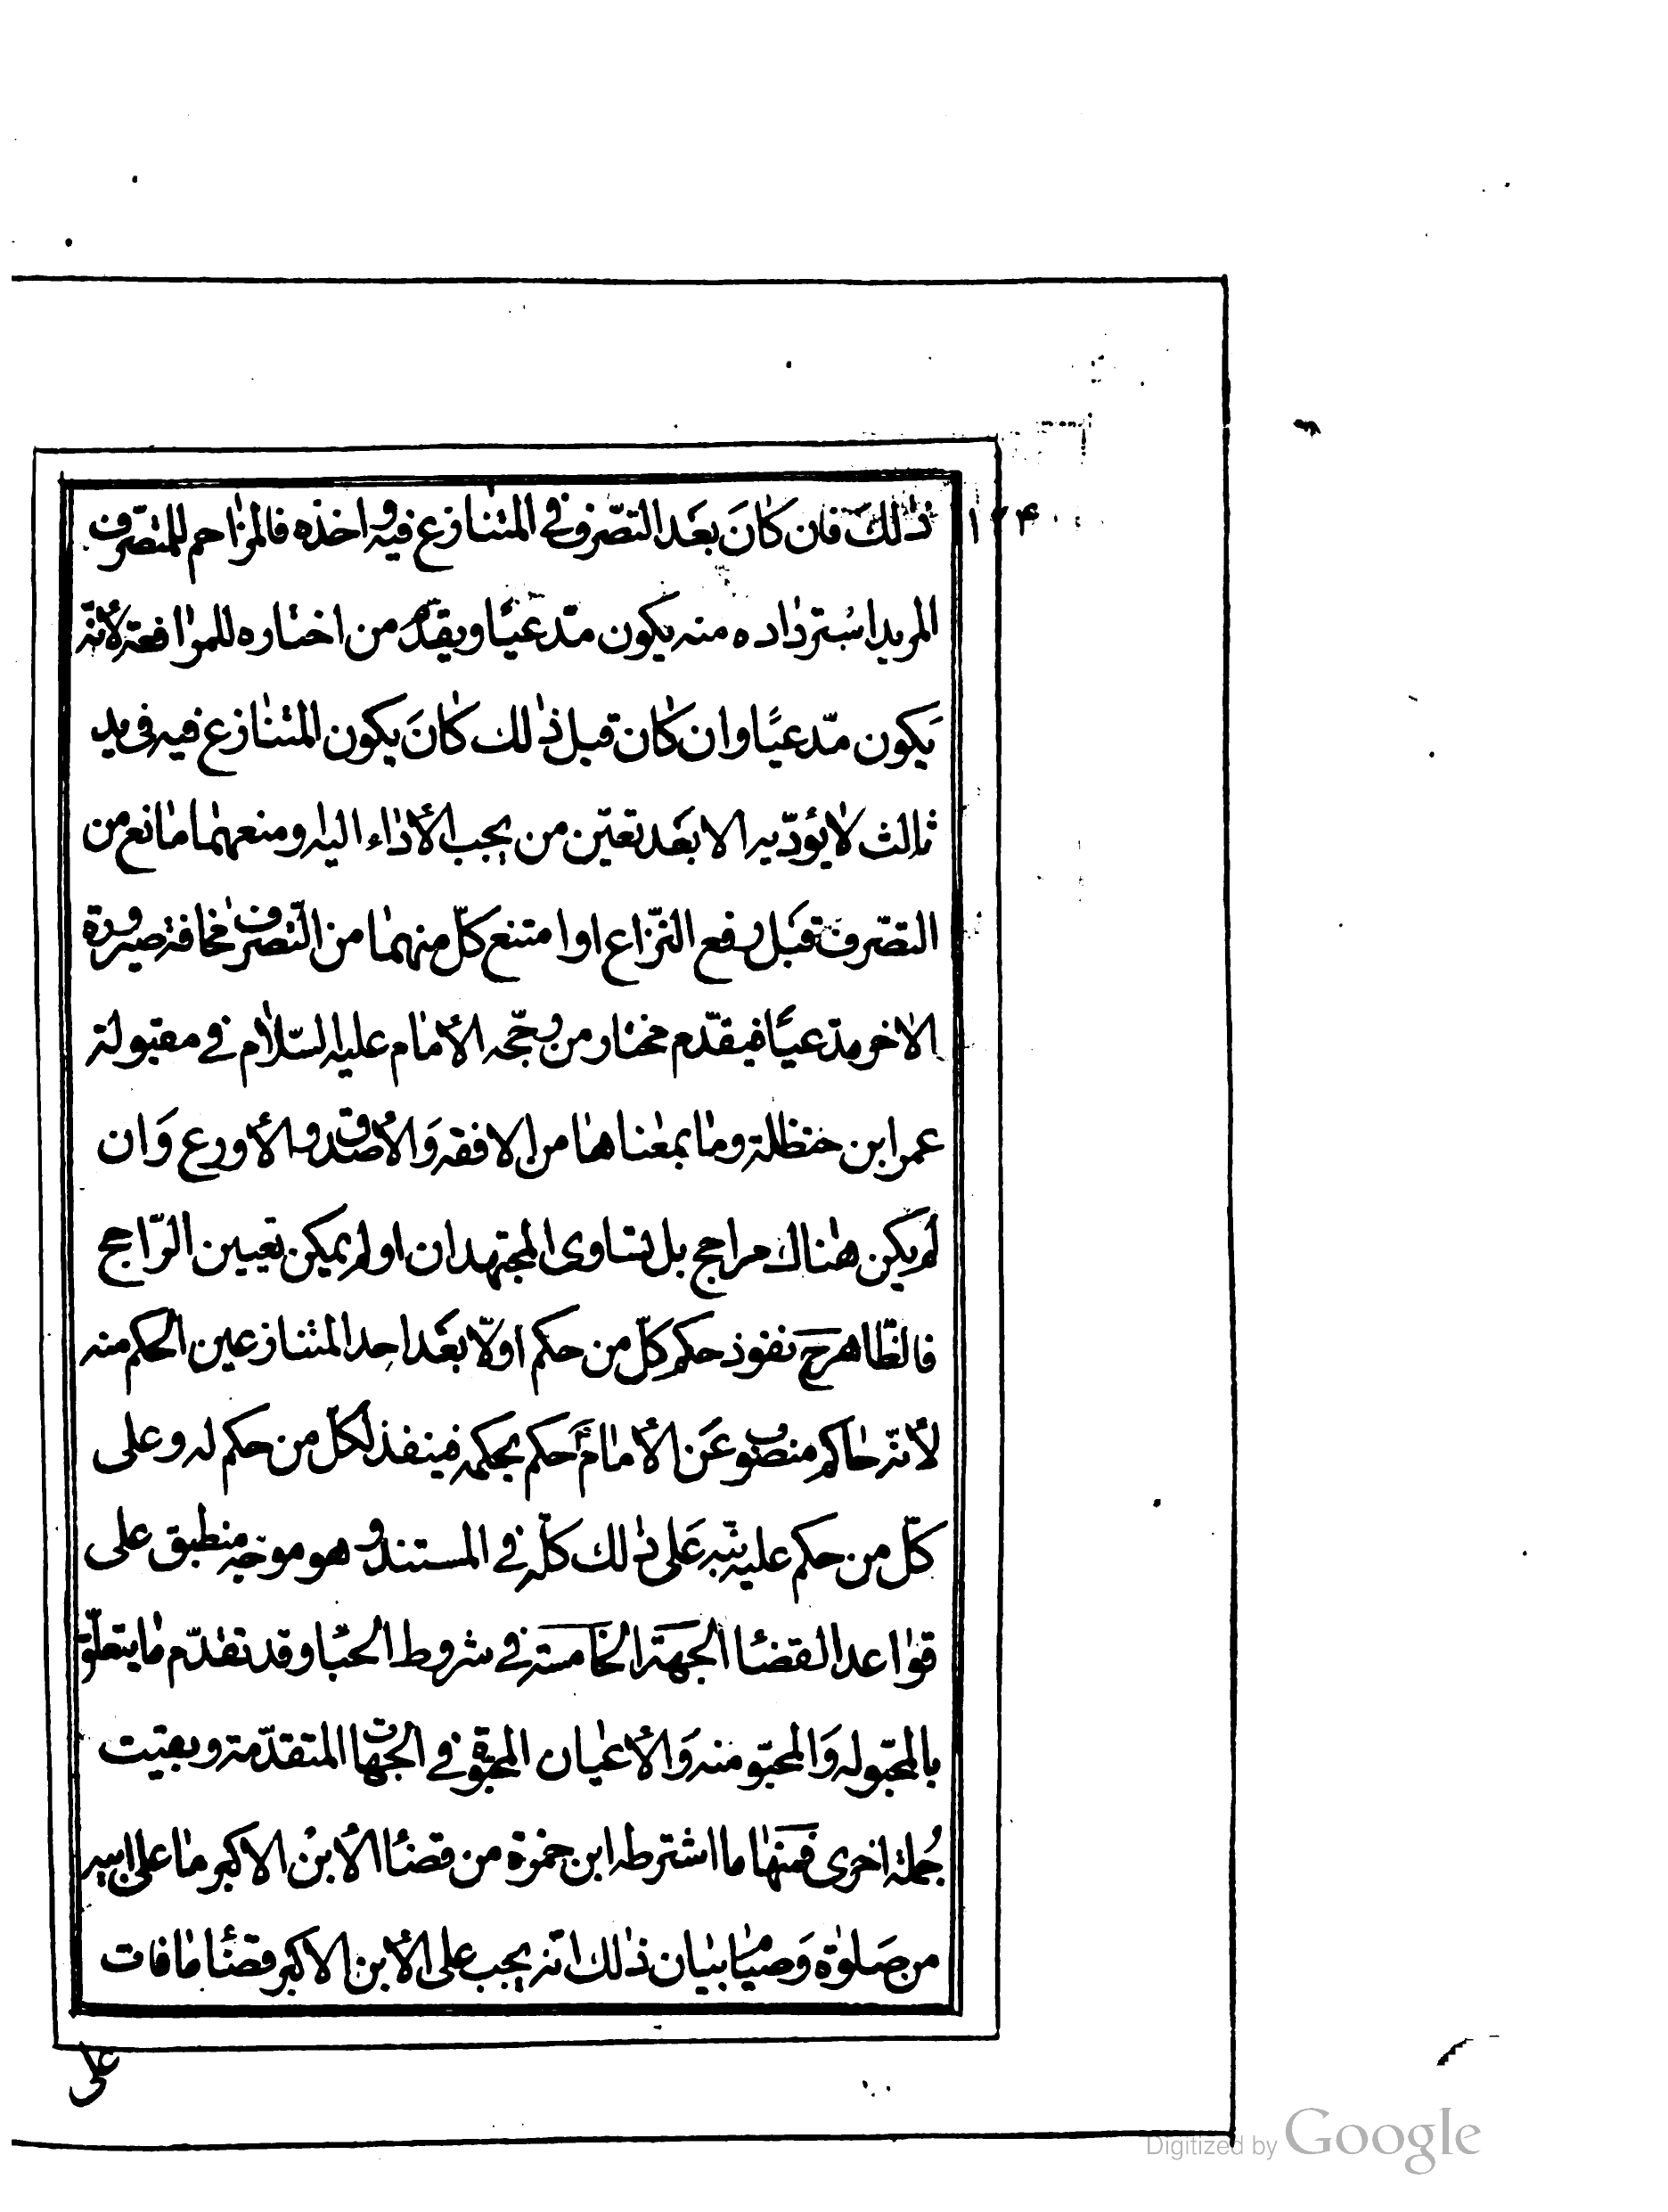 ١٢۴
ذٰلك فان كٰانَ بعَد التصّرف فى المتنٰازع فيه واخذه فالمزٰاحم للمتصرّف
المريد استردٰاده منه يكون مدّعيًا ويقدّم من اختاره للمرٰافعة لأنّه
يَكون مدّعيًا وان كٰان قبل ذٰلك كٰانَ يكون المتنٰازع فيه فى يد
ثالث لٰا يؤدّيه الا بعَد تعيّن من يجب الأدٰاء اليه ومنعهمٰا مٰانع من
التصّرف قبَل رفع النّزاع او امتنع كلّ منهمٰا من التّصرف مخٰافة صيرورة
الاخر مدّعيًا فيقدّم مختار من رجّحه الأمٰام عليه السّلاٰم فى مقبولة
عمر ابن حنظلة ومٰا بمعنٰاهٰا من الافقه وَالأصدق والأورع وَان
لم يكن هنٰاك مراجح بل تساوى المجتهدان او لم يمكن تعيين الرّاجح
فالظّاهر ح نفوذ حكم كلّ من حكم اولّا بعَد احد المتنازعين الحكم منه
لأنّه حٰاكم منصوب عَن الأمٰامَ حكم بحكمه فينفذ لكلّ من حكم له وعلى
كلّ من حكم عليه نبّه عَلى ذٰلك كلّه فى المستند وهو موجّه منطبق على
قوٰاعد القضٰا الجهَة الخٰامسة فى شروط الحبٰا وقد تقدّم مٰا يتعلّق
بالمحّبو له وَالمحبّو منه وَالأعيٰان المحبوّة فى الجهات المتقدّمة وبقيت
جُملة اخرى فمنَهٰا ما اشترطه ابن حمزة من قضٰا الأبن الاكبر مٰا على ابيه
من صَلوٰة وَصيٰام بيٰان ذٰلك انّه يجب على الأبن الاكبر قضٰا مٰا فات
على
Digitized by Google